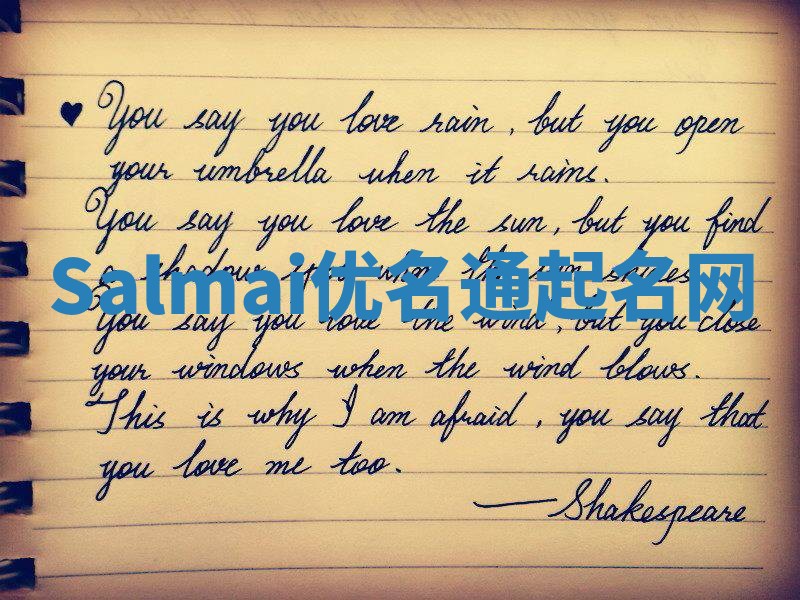 ♥ You say you love rain, but you open
your umbrella when it rains.
You say you love the sun, but you find
a shadow spot when the sun shines.
Salmai优名通起名网
You say you love the wind, but you close
your windows when the wind blows.
This is why I am afraid, you say that
you love me too.
— Shakespeare